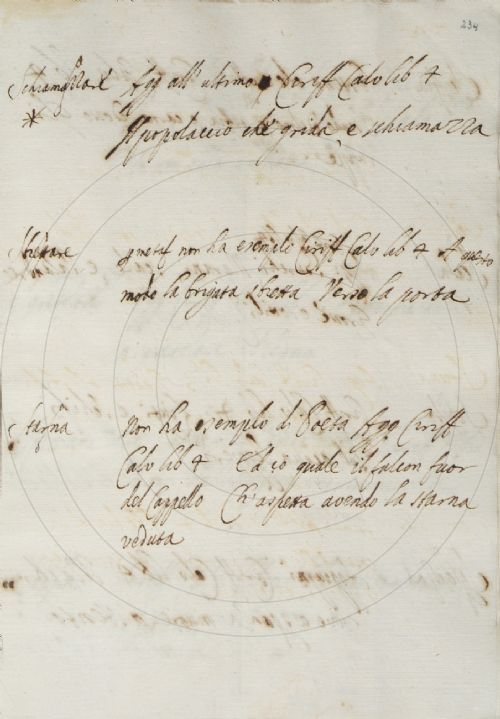 234
Schiamazzare Agg all' ultimo Ciriff Calv lib 4
* Il popolaccio che grida, e schiamazza
Sbiettare questi non ha esempli Ciriff Calv lib 4 A questo
modo la brigata sbietta Verso la porta
Starna Non ha esemplo di Poeta Agg Ciriff
Calv lib 4 Ed io quale il falcon fuor
del Cappello Ch' aspetta avendo la starna
veduta